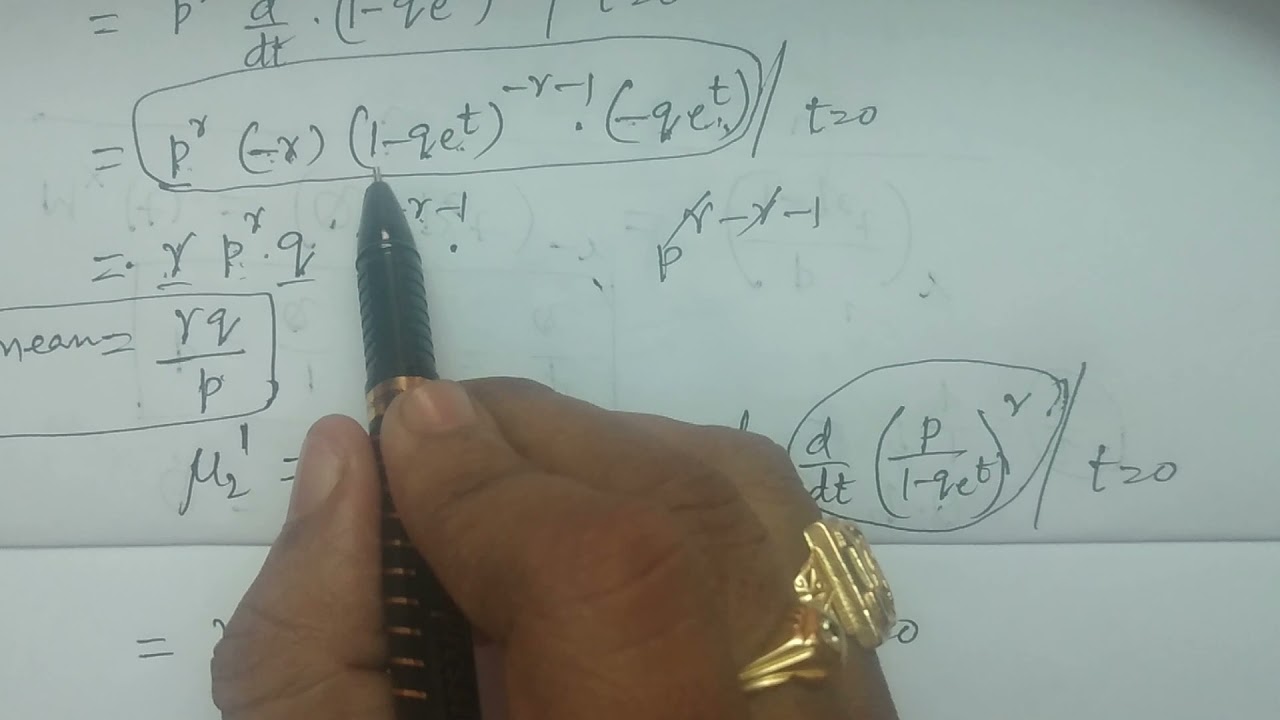 = p^r d/dt · (1-qe^t) / t=0
= p^r (-r) (1-qe^t)^{-r-1} · (-qe^t) / t=0
= · r p^r · q · -r-1 · p^{r-r-1}
mean = rq/p
μ₂' = d/dt (p/(1-qe^t))^r / t=0
=